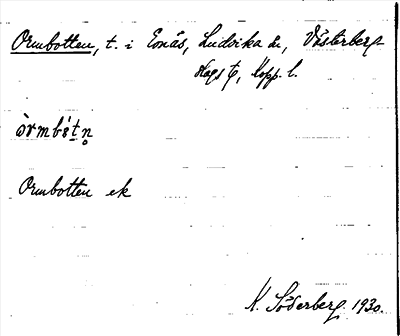 Ormbotten, t. i Enås, Ludvika sn, Västerbergslags t., Kopp. l.
òrmbèt̥n̥
Ormbotten ek
K. Söderberg 1930.